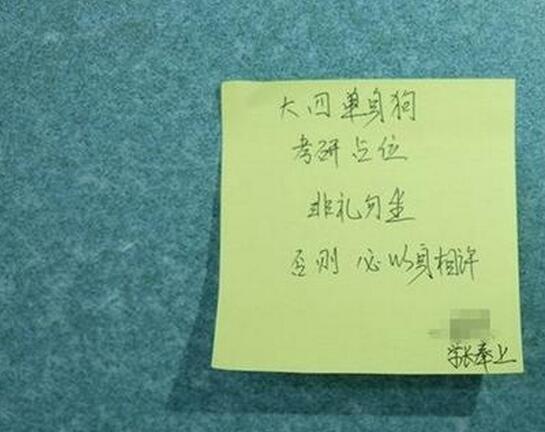 大四单身狗
考研占位
非礼勿坐
否则 必以身相许
学长奉上